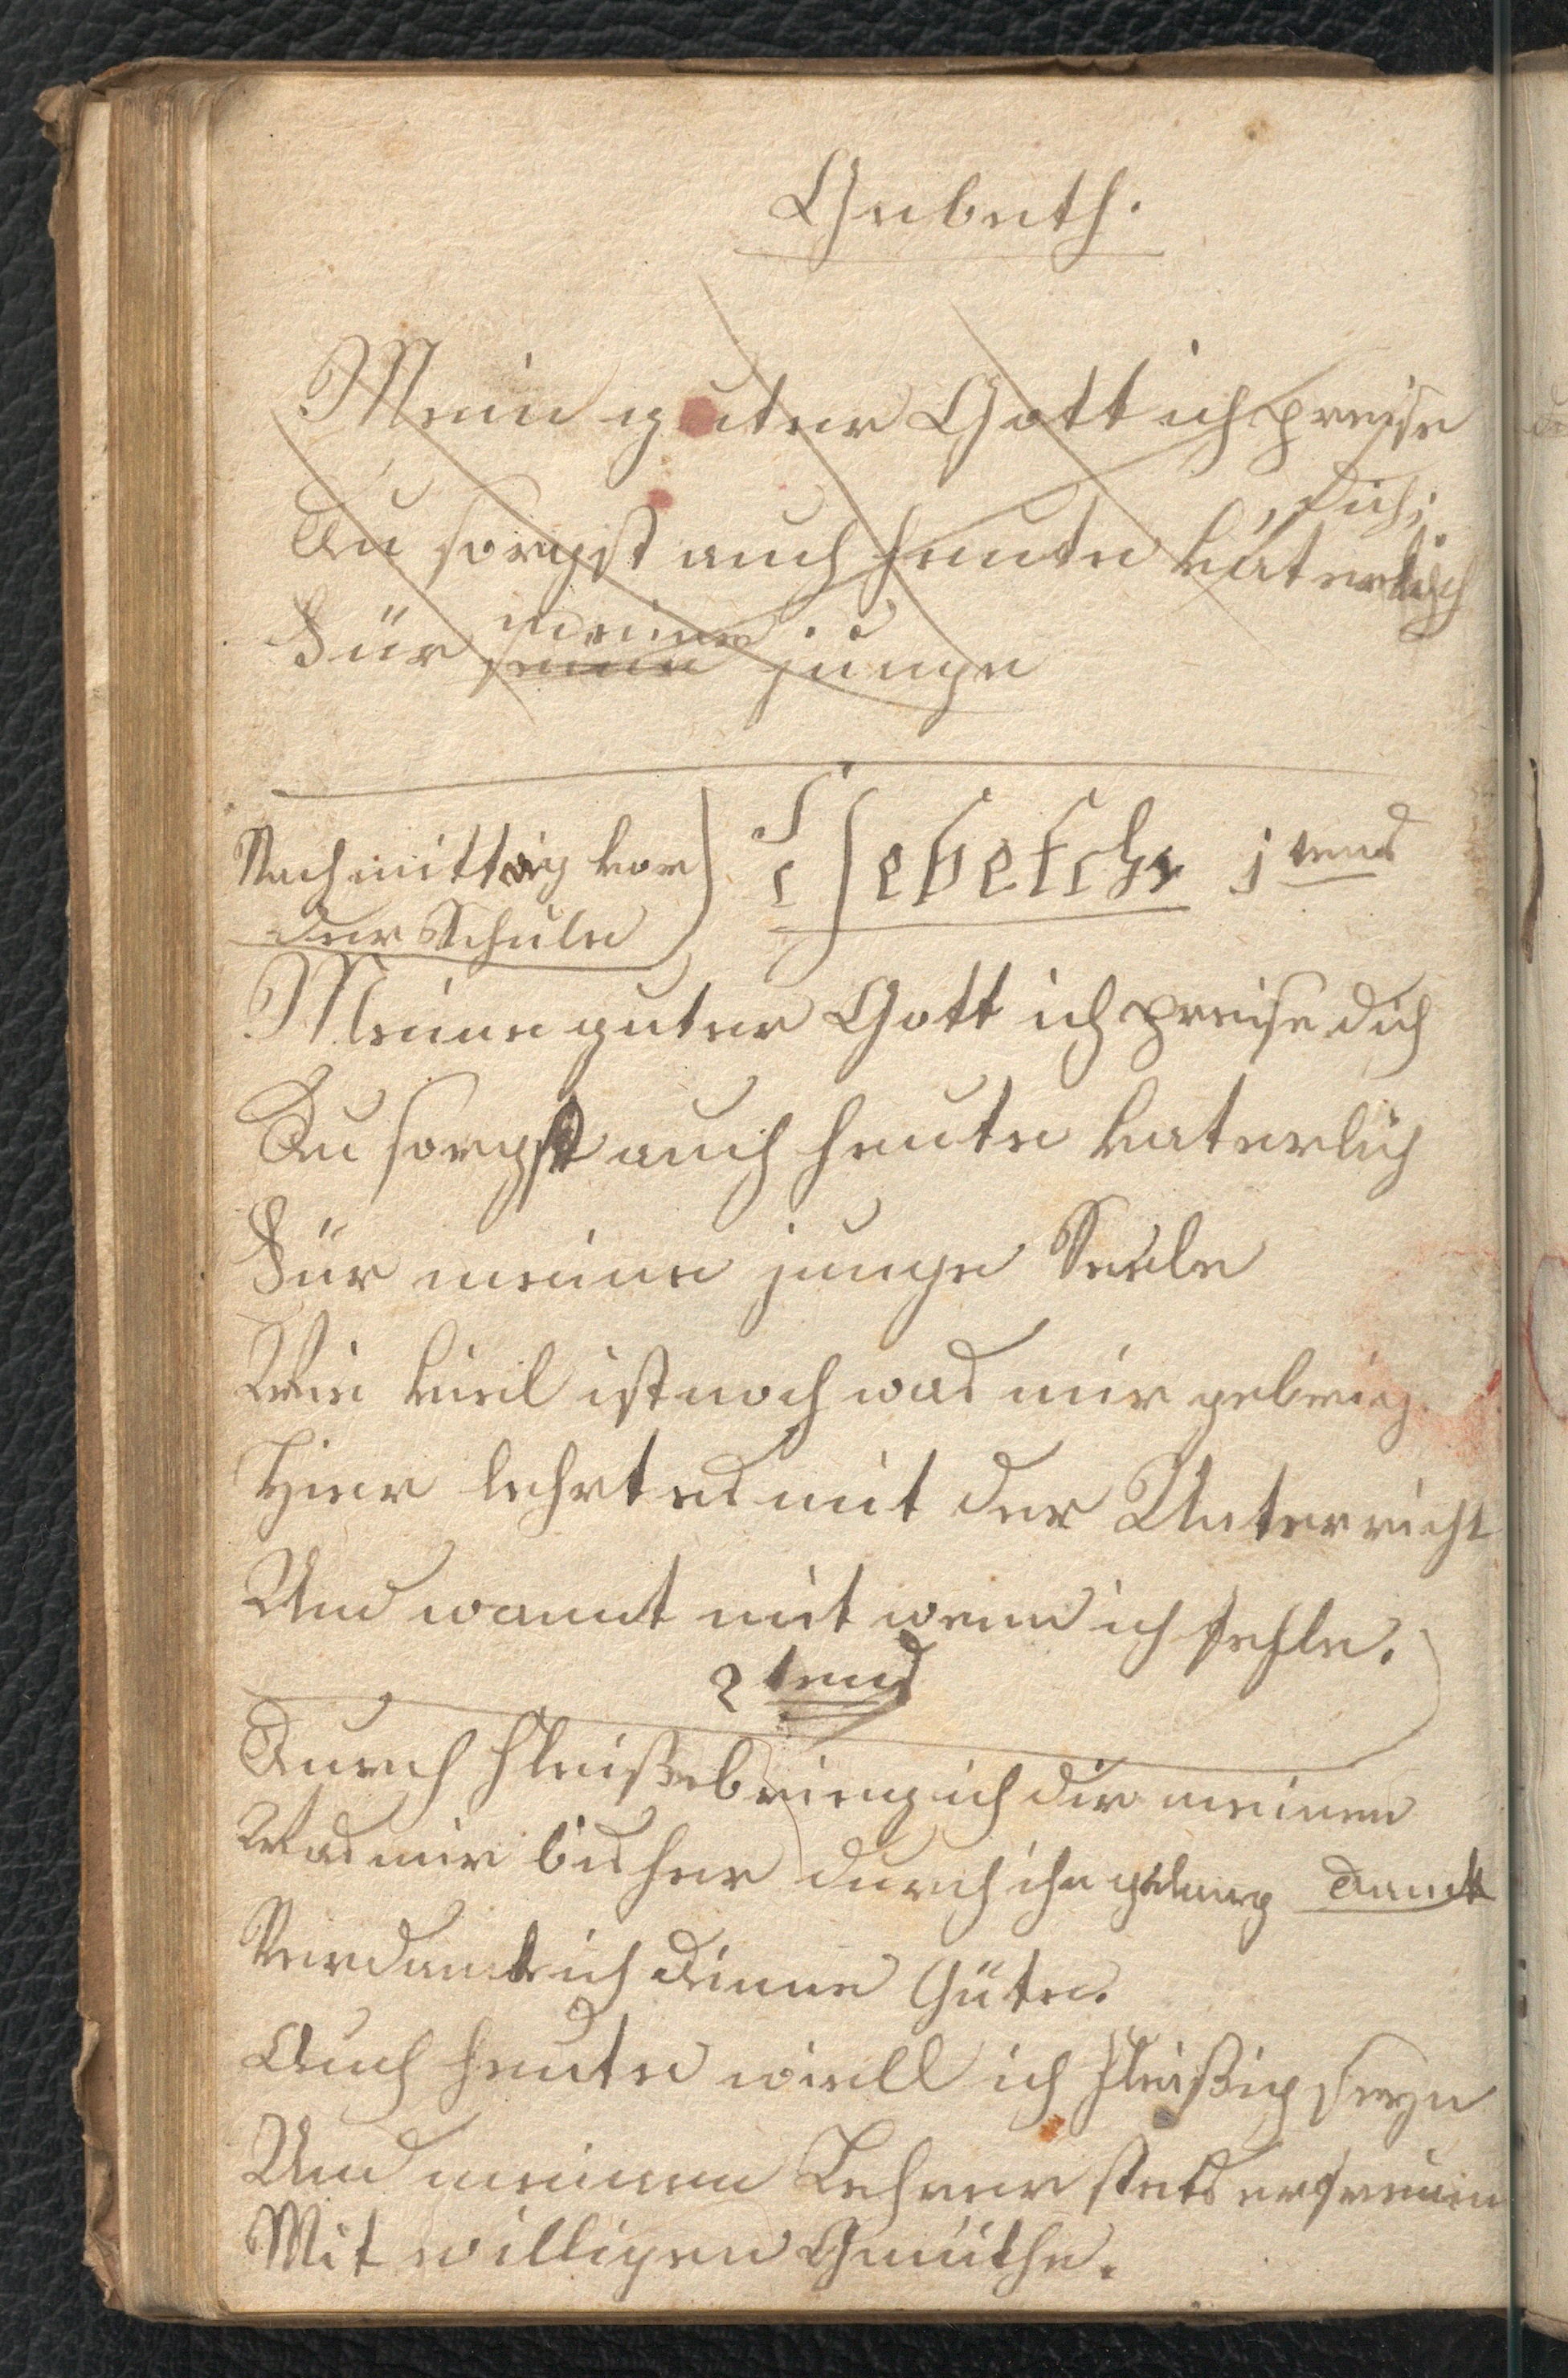 Gebeth.
Mein guter Gott ich preise
dich;
Du sorgst auch heute väterlich
Für seine meine junge
Nachmittag vor
der Schule
Gebetch 1tens
Meine guter Gott ich preise dich
Du sorgst auch heute vaterlich
Für meine junge Seele
Wie viel ist noch was mir gebrich
Hier lehrt es mit der Unterricht
Und warnt mit wenn ich fehle.
2tens
Durch Fleiße bring ich dir meinen
Danck
Was mir bisher durch ihn gelang
Verdank ich deiner Güte.
Auch heute will ich fleißig seyn
Und meinem Lehrer stets erfreuen
Mit willigen Gmüthe.